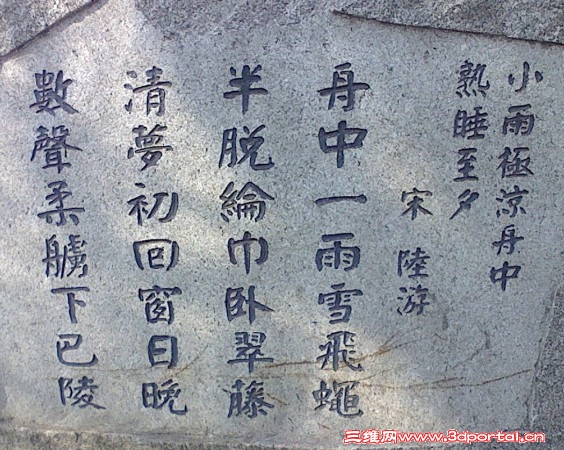 小雨極涼舟中
熟睡至夕
宋 陸游
舟中一雨雪飛蠅
半脫綸巾卧翠藤
清夢初回窗日晚
數聲柔艣下巴陵
三维网www.3dportal.cn